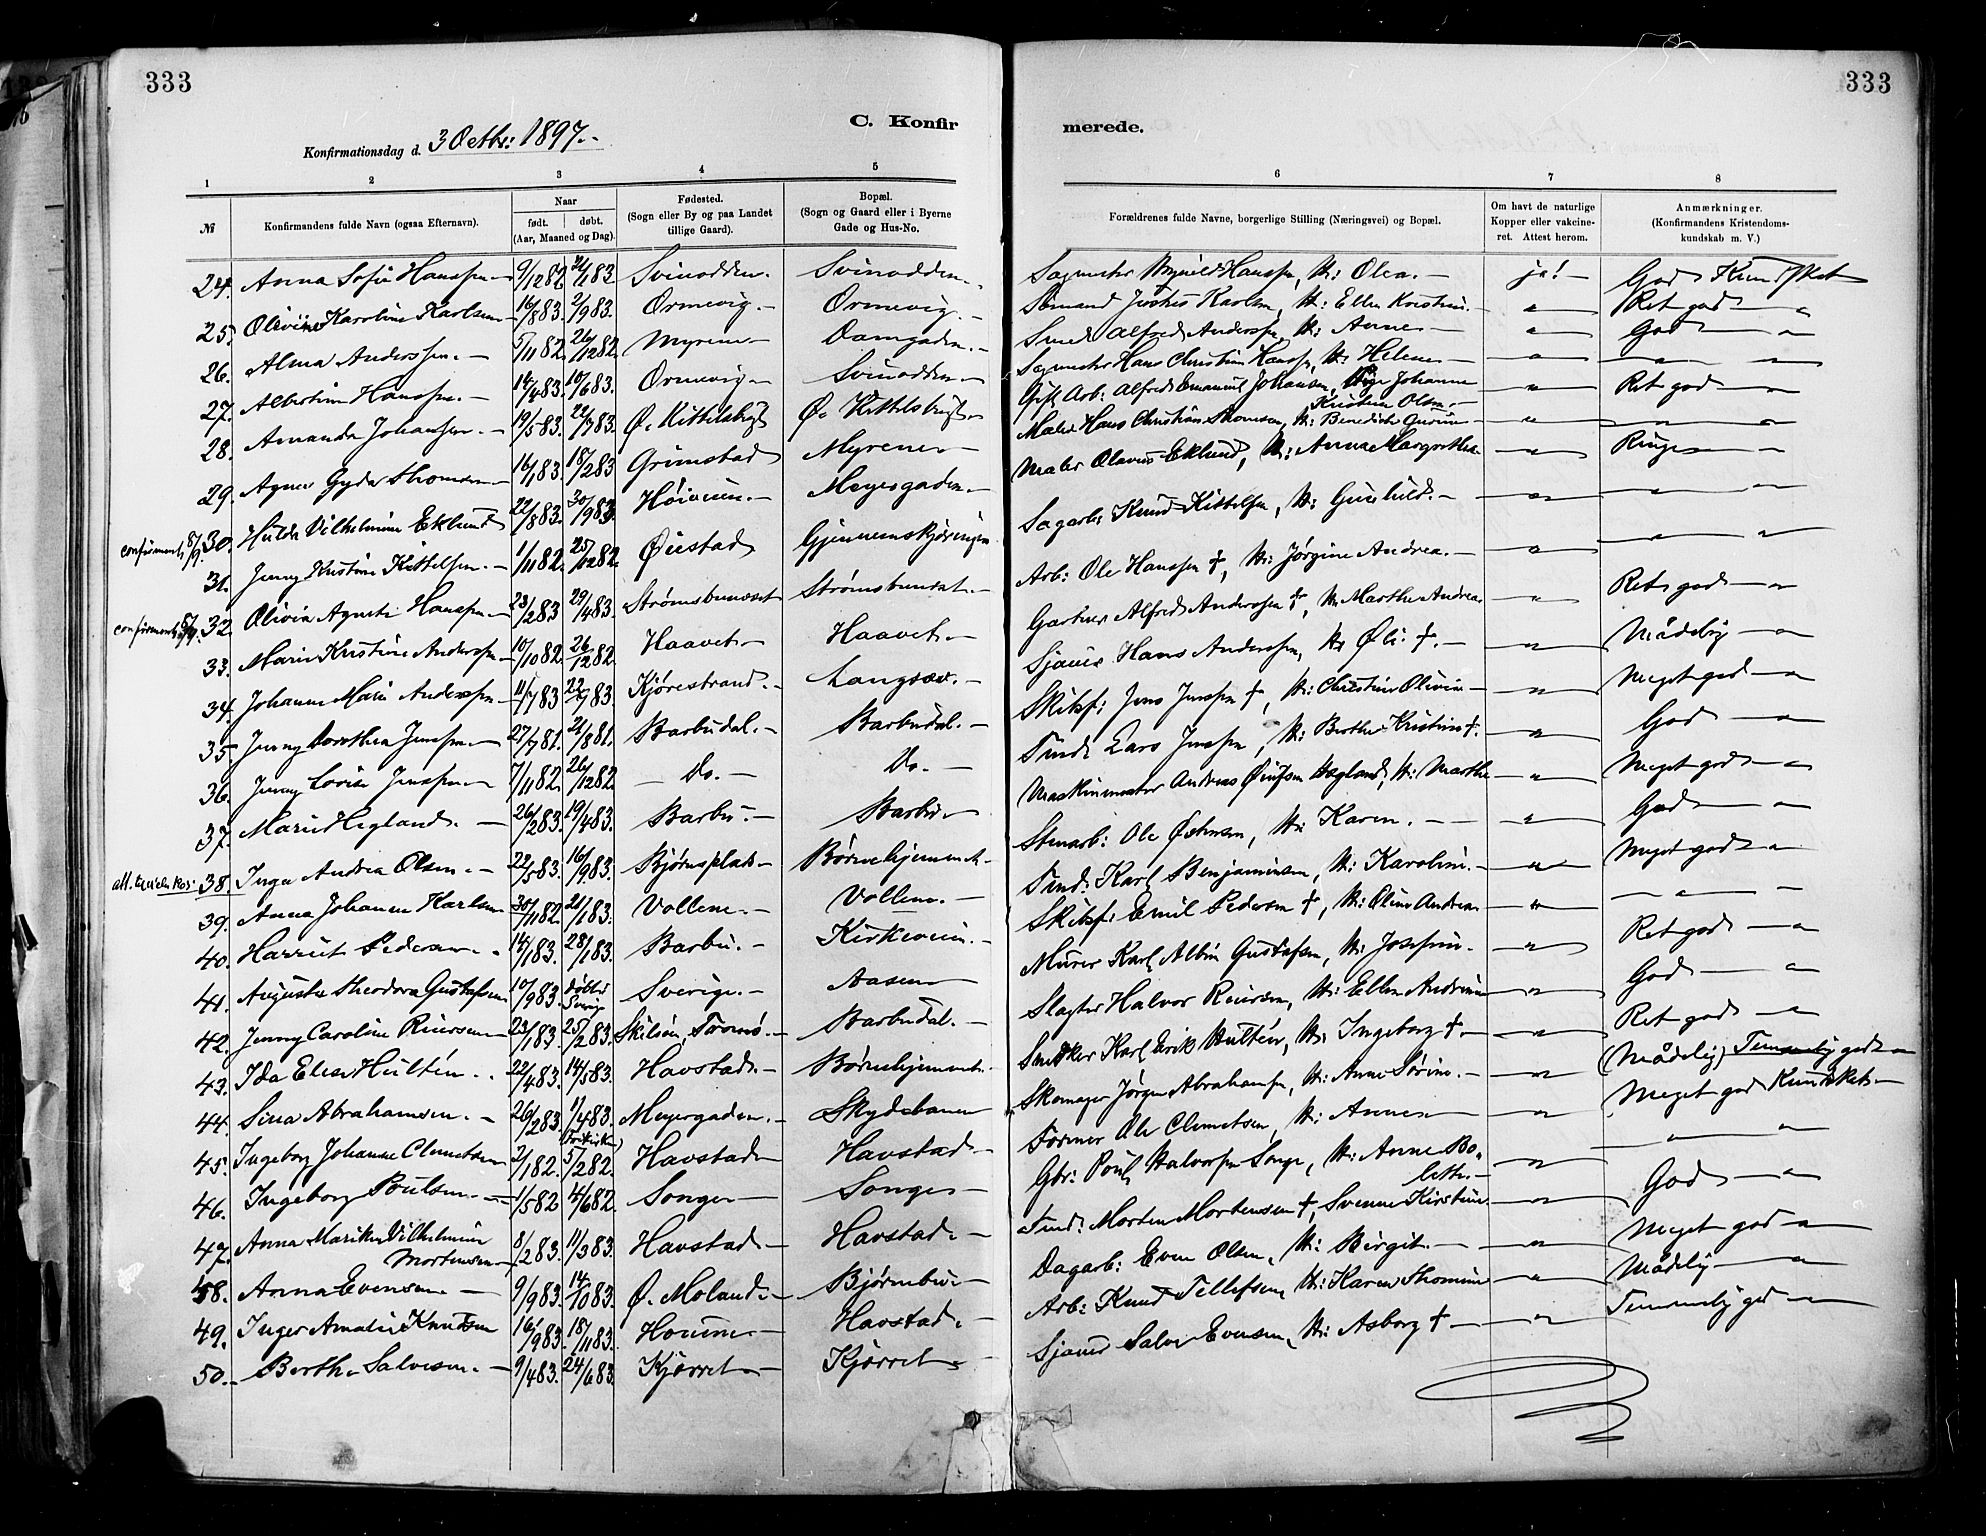 333
333
C. Konfirmerede.
Konfirmationsdag d. 3 Octbr: 1897.-
1 2 3 4 5 6 7 8
№
Konfirmandens fulde Navn (ogsaa Efternavn).
Naar
født. døbt.
(Aar, Maaned og Dag).
Fødested.
(Sogn eller By og paa Landet
tillige Gaard).
Bopæl.
(Sogn og Gaard eller i Byerne
Gade og Hus-No.
Forældrenes fulde Navne, borgerlige Stilling (Næringsvei) og Bopæl.
Om havt de naturlige
Kopper eller vakcine-
ret. Attest herom.
Anmærkninger.
(Konfirmandens Kristendoms-
kundskab m. V.)
24. Anna Sofie Hanssen 9/12 82 Svinodden. Svinodden. Hanssen, H: Olea. ja! God Kundskab
25. Olivine Karoline Karlsen 16/8 83. 2/9 83. Ormevig. Ormevig. Sømand Karlsen, H: Ellen Kristine. " Ret god "
26. Alma Anderssen. 5/11 82. 26/12 82. Myrene Damgaden. Smed Alfred Anderssen, H: Anne " God "
27. Albertine Hanssen. 14/4 83. 10/6 83. Ormevig Svinodden Sagmester Hans Christian Hanssen, H: Helene " " "
28. Amanda Johanssen. 19/5 83. 22/7 83. Ø. Kittelsbugt Ø. Kittelsbugt Gift Arb: Alfred Emanuel Johansen, Pige Johanne Kristine Olsen. " Ret god "
29. Agnes Gyda Thomsen 16/1 83. 18/2 83 Grimstad Myrene Maler Hans Christian Thomsen, H: Benedicte " " "
confirmeret 30. Hulda Vilhelmine Eklund 22/8 83. 30/9 83. Høiveien. Meyesgaden. Maler Olavus Eklund, H: Anna Margrethe " Ringe "
31. Jenny Kristine Kittelsen. 1/11 82. 25/12 82. Øiestad Gjennemskjæringen Sagarb: Knud Kittelsen, H: Gunhild. " " "
confirmeret 32. Olivia Hanssen 23/2 83 29/4 83. Strømsbuneset Strømsbuneset. Arb: Ole Hanssen †, H: Jørgine Andrea. " " "
33. Marie Kristine Anderssen 10/10 82. 26/12 82. Haavet Haavet. Gartner Alfred Anderssen †, H: Marthe Andrea " Ret god "
34. Johanne Marie Anderssen 11/7 83 Kjørestrand. Langsæv. Sjauer Hans Anderssen, H: †. " Mådelig "
35. Jenny Dorothea Jenssen 27/7 81. 21/8 81. Barbudal. Barbudal. Skibsf: Jens Jenssen †, H: Christine Olivia " Meget god "
36. Jenny Lovise Jenssen 7/11 82. 26/12 82. Do. Do. Tmd: Lars Jenssen, H: Berthe Kristine †. " God "
37. Marie Hegland. 26/2 83. 19/4 83. Barbu. Barbu. Maskinmester Andreas Hegland, H: Marthe " Meget god "
38. Inga Andrea Olsen. 22/5 83. 16/9 83. Bjørnsplads Børnehjemmet. Stenarb: Ole, H: Karen. " God "
39. Anna Johanne Karlsen 30/11 82. 21/1 83. Vollene. Vollene. Tmd: Karl Benjaminsen, H: Karoline. " Meget god "
40. Harriet Pedersen. 14/1 83. 28/1 83. Barbu. Kirkeveien. Skibsf: Emil Pedersen †, H: Oline Andrea. " " "
41. Auguste Theodora Gustafsen 10/9 83. døbt i Sverig Sverige. Aasen Murer Karl Albin Gustafsen, H: Josefine. " Ret god "
42. Jenny Caroline Reiersen 23/1 83. 25/2 83. Tromø. Barbudal. Slagter Halvor Reiersen, H: Ellen Andrine " God "
43. Ida Elise Hultén. 22/4 83. 14/5 83. Havstad. Børnehjemmet. Snedker Karl Erik Hultén, H: Ingeborg †. " Ret god "
44. Sina Abrahamsen. 26/2 83. 1/4 83. Meyergaden. Skydebanen Skomager Jørgen Abrahamsen, H: Anne Sørine. " (Mådelig) Temmelig god
45. Ingeborg Johanne Clemetsen 2/1 82. (Frikirken) 5/2 82. Havstad Havstad. Former Ole Clemetsen, H: Anne " Meget god Kundskab
46. Ingeborg Poulsen 1/5 82 4/6 82. Songe Songe Gbr: Poul Halvorsen Songe, H: Anne Bolette. " " "
47. Anna Marikken Vilhelmine Mortensen 8/2 83. 11/3 83. Havstad Havstad. Tmd: Morten Mortensen †, Svenne Kirstine. " God "
48. Anna Evensen. 9/9 83. 14/10 83. Ø. Moland. Bjørnebo Dagarb: Even Olsen, H: Birgit. " Meget god "
49. Inger Amalie Knudsen 16/9 83. 18/11 83. Houene Havstad. Arb: Knud Tellefsen, H: Karen Thomine " Mådelig "
50. Berthe Salvesen. 9/4 83. 24/6 83. Kjørret Kjørret. Sjauer Salve Evensen, H: Asborg † " Temmelig god "